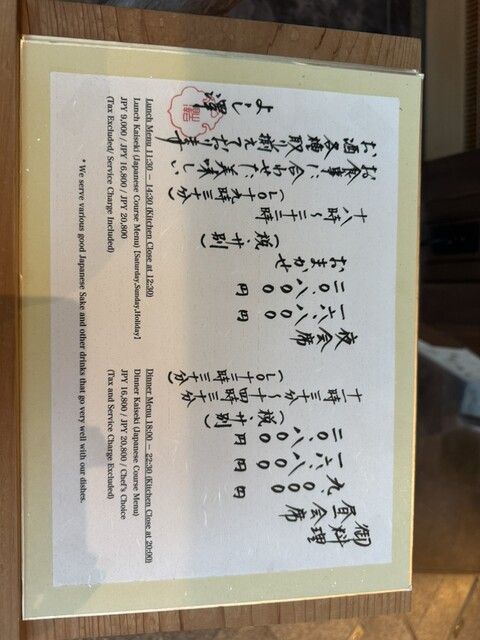 御料理
昼会席
九、〇〇〇円
一六、八〇〇円
二〇、八〇〇円
(税、サ別)
十一時三十分〜十四時三十分
(L.O十二時三十分)
夜会席
一六、八〇〇円
二〇、八〇〇円
おまかせ
(税、サ別)
十八時〜二十二時
(L.O十九時三十分)
お食事に合わせた美味しい
お酒各種取り揃えております
よし澤
Lunch Menu 11:30 – 14:30 (Kitchen Close at 12:30)
Lunch Kaiseki (Japanese Course Menu) [Saturday,Sunday,Holiday]
JPY 9,000 / JPY 16,800 / JPY 20,800
(Tax Excluded/ Service Charge Included)
Dinner Menu 18:00 – 22:30 (Kitchen Close at 20:00)
Dinner Kaiseki (Japanese Course Menu)
JPY 16,800 / JPY 20,800 / Chef's Choice
(Tax and Service Charge Excluded)
* We serve various good Japanese Sake and other drinks that go very well with our dishes.